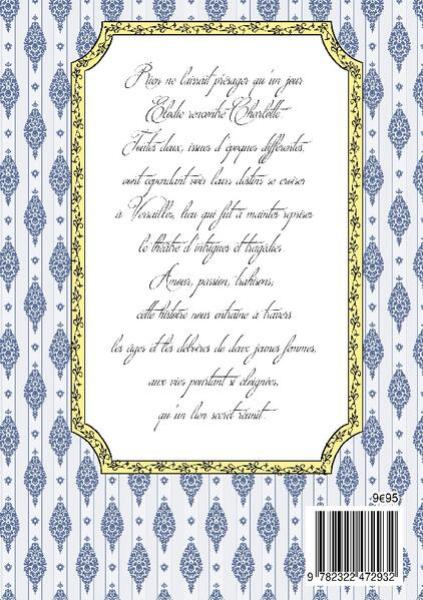 Rien ne laissait présager qu'un jour
Elodie rencontre Charlotte.
Toutes deux, issues d'époques différentes,
vont cependant voir leurs destins se croiser
à Versailles, lieu qui fut à maintes reprises
le théâtre d'intrigues et tragédies.
Amour, passion, trahisons,
cette histoire nous entraîne à travers
les âges et les déboires de deux jeunes femmes,
aux vies pourtant si éloignées,
qu'un lien secret réunit.
9€95
9 782322 472932